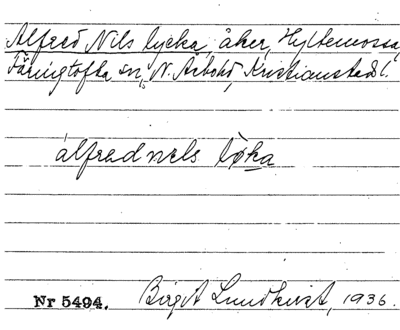 Alfred Nils lycka, åker, Hyltemossa,
Färingtofta sn, N. Åsbohd, Kristianstads l.
álfrad nels løka
Nr 5494. Birgit Lundkvist, 1936.